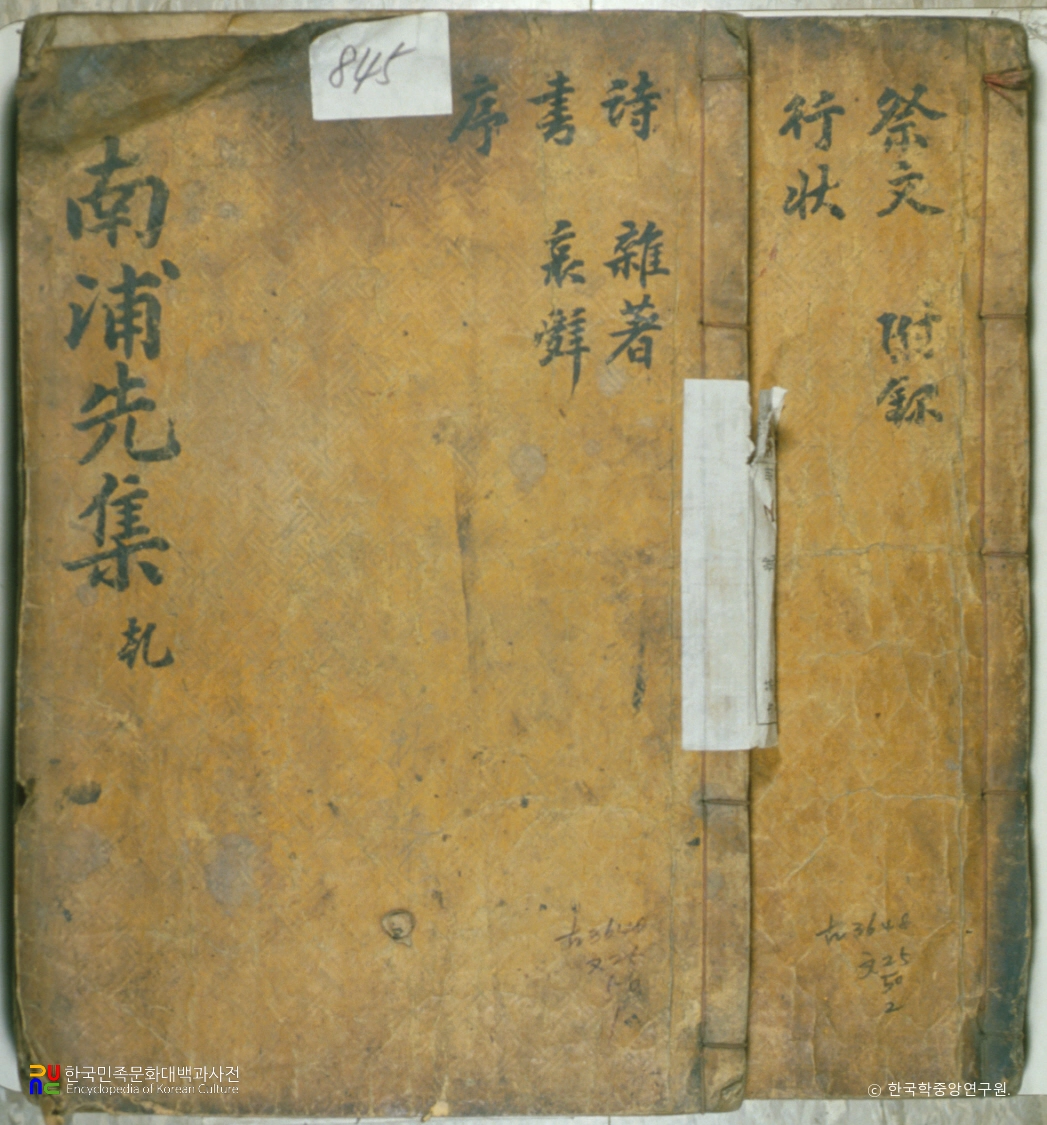 845
祭文 附錄
行狀
詩 雜著
書 哀辭
序
南浦先集 乾
古3648
文25
50
2
한국민족문화대백과사전
Encyclopedia of Korean Culture
© 한국학중앙연구원.